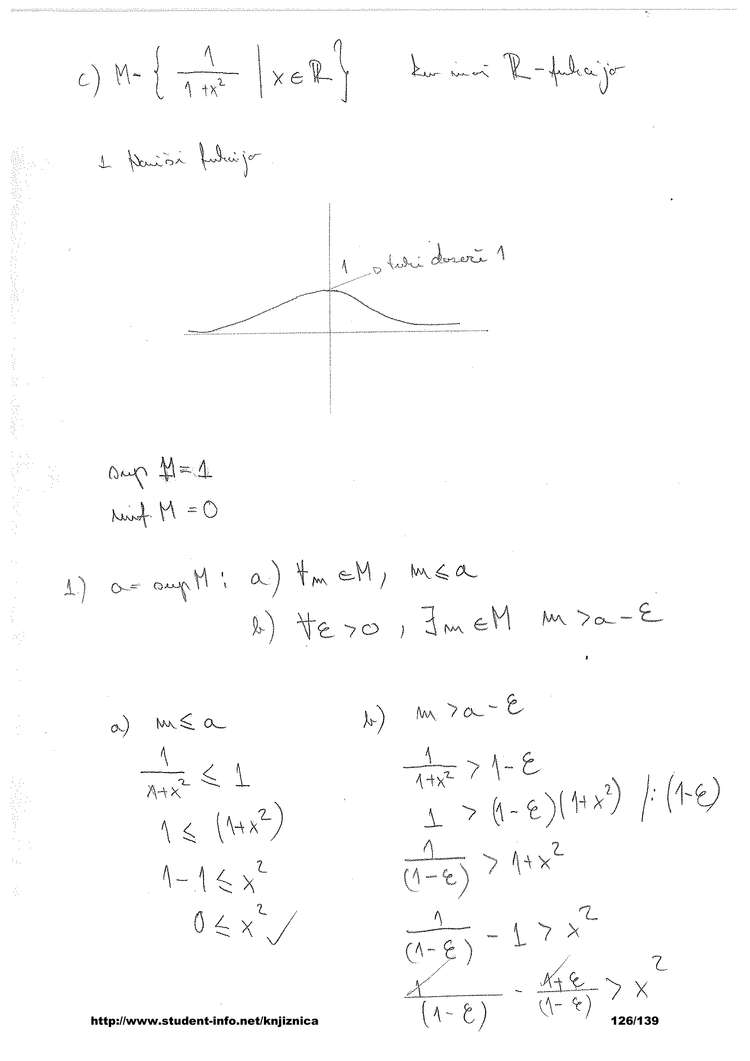 c) M = { 1/(1+x²) | x ∈ ℝ } ker imaš ℝ - fukcijo
1 Nariši fukcijo
1 tuki doseže 1
sup M = 1
inf M = 0
1.) a = sup M : a) ∀m ∈ M, m ≤ a
b) ∀ε > 0, ∃m ∈ M m > a - ε
a) m ≤ a
1/(1+x²) ≤ 1
1 ≤ (1+x²)
1-1 ≤ x²
0 ≤ x² ✓
b) m > a - ε
1/(1+x²) > 1-ε
1 > (1-ε)(1+x²) /:(1-ε)
1/(1-ε) > 1+x²
1/(1-ε) - 1 > x²
1/(1-ε) - 1+ε/(1-ε) > x²
http://www.student-info.net/knjiznica 126/139